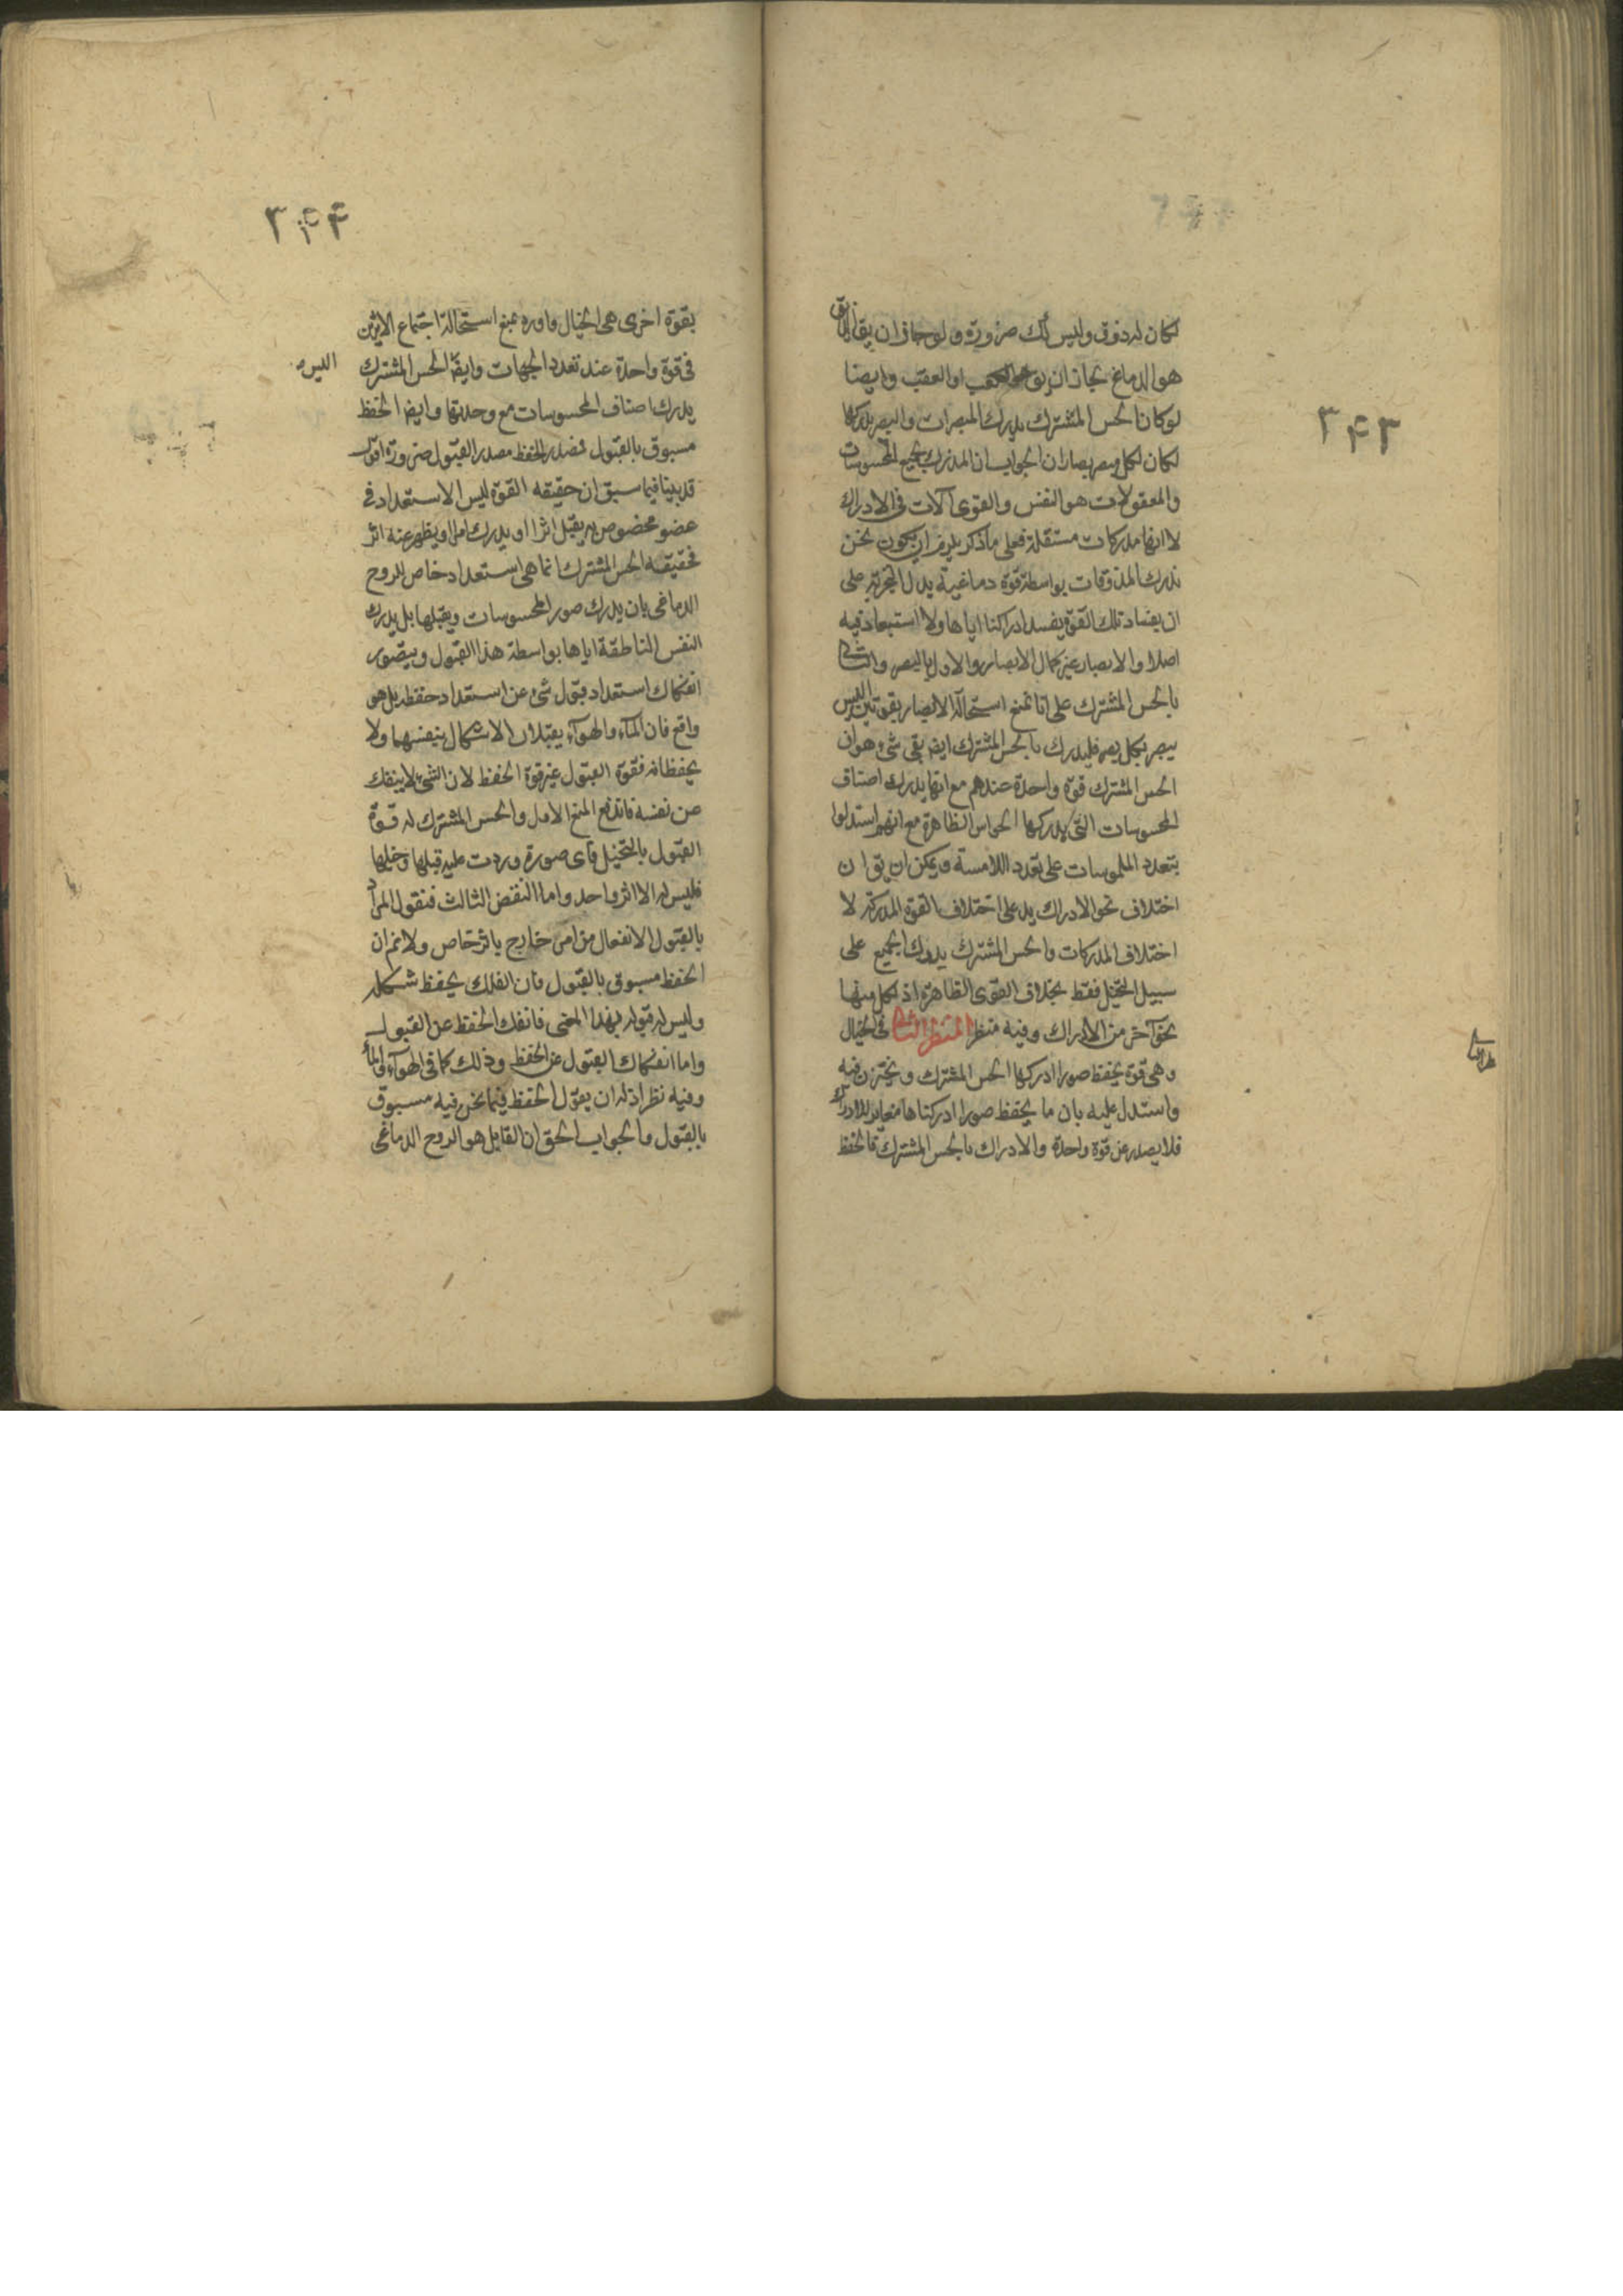 ٣۴٣
لكان له ذوق وليس كك ضرورة ولو جاز ان يقال الذائق
هو الدماغ لجاز ان يق او العقب وايضا
لو كان الحس المشترك يدرك المبصرات والبصر يدركها
لكان لكل مبصر بصاران الجواب ان المدرك لجميع المحسوسات
والمعقولات هو النفس والقوى آلات فى الادراك
لا انها مدركات مستقلة فعلى ما ذكر يلزم ان يكون نحن
ندرك المذوقات بواسطة قوة دماغية يدل التجربة على
ان بفساد تلك القوة يفسد ادراكنا اياها ولا استبعاد فيه
اصلا والابصار غير كمال الابصار والاول بالبصر والثانى
بالحس المشترك على انا نمنع استحالة الابصار بقوتين اليس
يبصر بكل بصر فليدرك بالحس المشترك ايضا بقى شئ هو ان
الحس المشترك قوة واحدة عندهم مع انها يدرك اصناف
المحسوسات التى يدركها الحواس الظاهرة مع انهم استدلوا
بتعدد الملموسات على تعدد اللامسة ويمكن ان يق ان
اختلاف نحو الادراك يدل على اختلاف القوة المدركة لا
اختلاف المدركات والحس المشترك يدرك الجميع على
سبيل التخيل فقط بخلاف القوى الظاهرة اذ لكل منها
نحو آخر من الادراك وفيه منظر المنظر الثانى فى الخيال
وهى قوة يحفظ صورا ادركها الحس المشترك ويختزن فيه
واستدل عليه بان ما يحفظ صورا ادركناها مغاير للادراك
فلا يصدر عن قوة واحدة والادراك بالحس المشترك فالحفظ
٣۴۴
بقوة اخرى هى الخيال واورد بمنع استحالة اجتماع الاثرين
فى قوة واحدة عند تعدد الجهات وايضا الحس المشترك اليس
يدرك اصناف المحسوسات مع وحدتها وايضا الحفظ
مسبوق بالقبول فمصدر الحفظ مصدر القبول ضرورة اقول
قد بينا فيما سبق ان حقيقة القوة ليس الا استعداد فى
عضو مخصوص به يقبل اثرا او يدرك امرا ويظهر عنه اثر
فحقيقة الحس المشترك انما هى استعداد خاص للروح
الدماغى بان يدرك صور المحسوسات ويقبلها بل يدرك
النفس الناطقة اياها بواسطة هذا القبول ويتصور
انفكاك استعداد قبول شئ عن استعداد حفظه بل هو
واقع فان الماء والهواء يقبلان الاشكال بنفسهما ولا
يحفظانه فقوة القبول غير قوة الحفظ لان الشئ لا ينفك
عن نفسه فاندفع المنع الاول والحس المشترك له قوة
القبول بالتخيل فاى صورة وردت عليه قبلها وخيلها
فليس له الا اثر واحد واما النقض الثالث فنقول المراد
بالقبول الانفعال من امر خارج باثر خاص ولا نم ان
الحفظ مسبوق بالقبول فان الفلك يحفظ شكله
وليس له قبوله بهذا المعنى فانفك الحفظ عن القبول
واما انفكاك القبول عن الحفظ وذلك كما فى الهواء والماء
وفيه نظر اذ له ان يقول الحفظ فيما نحن فيه مسبوق
بالقبول والجواب الحق ان القابل هو الروح الدماغى